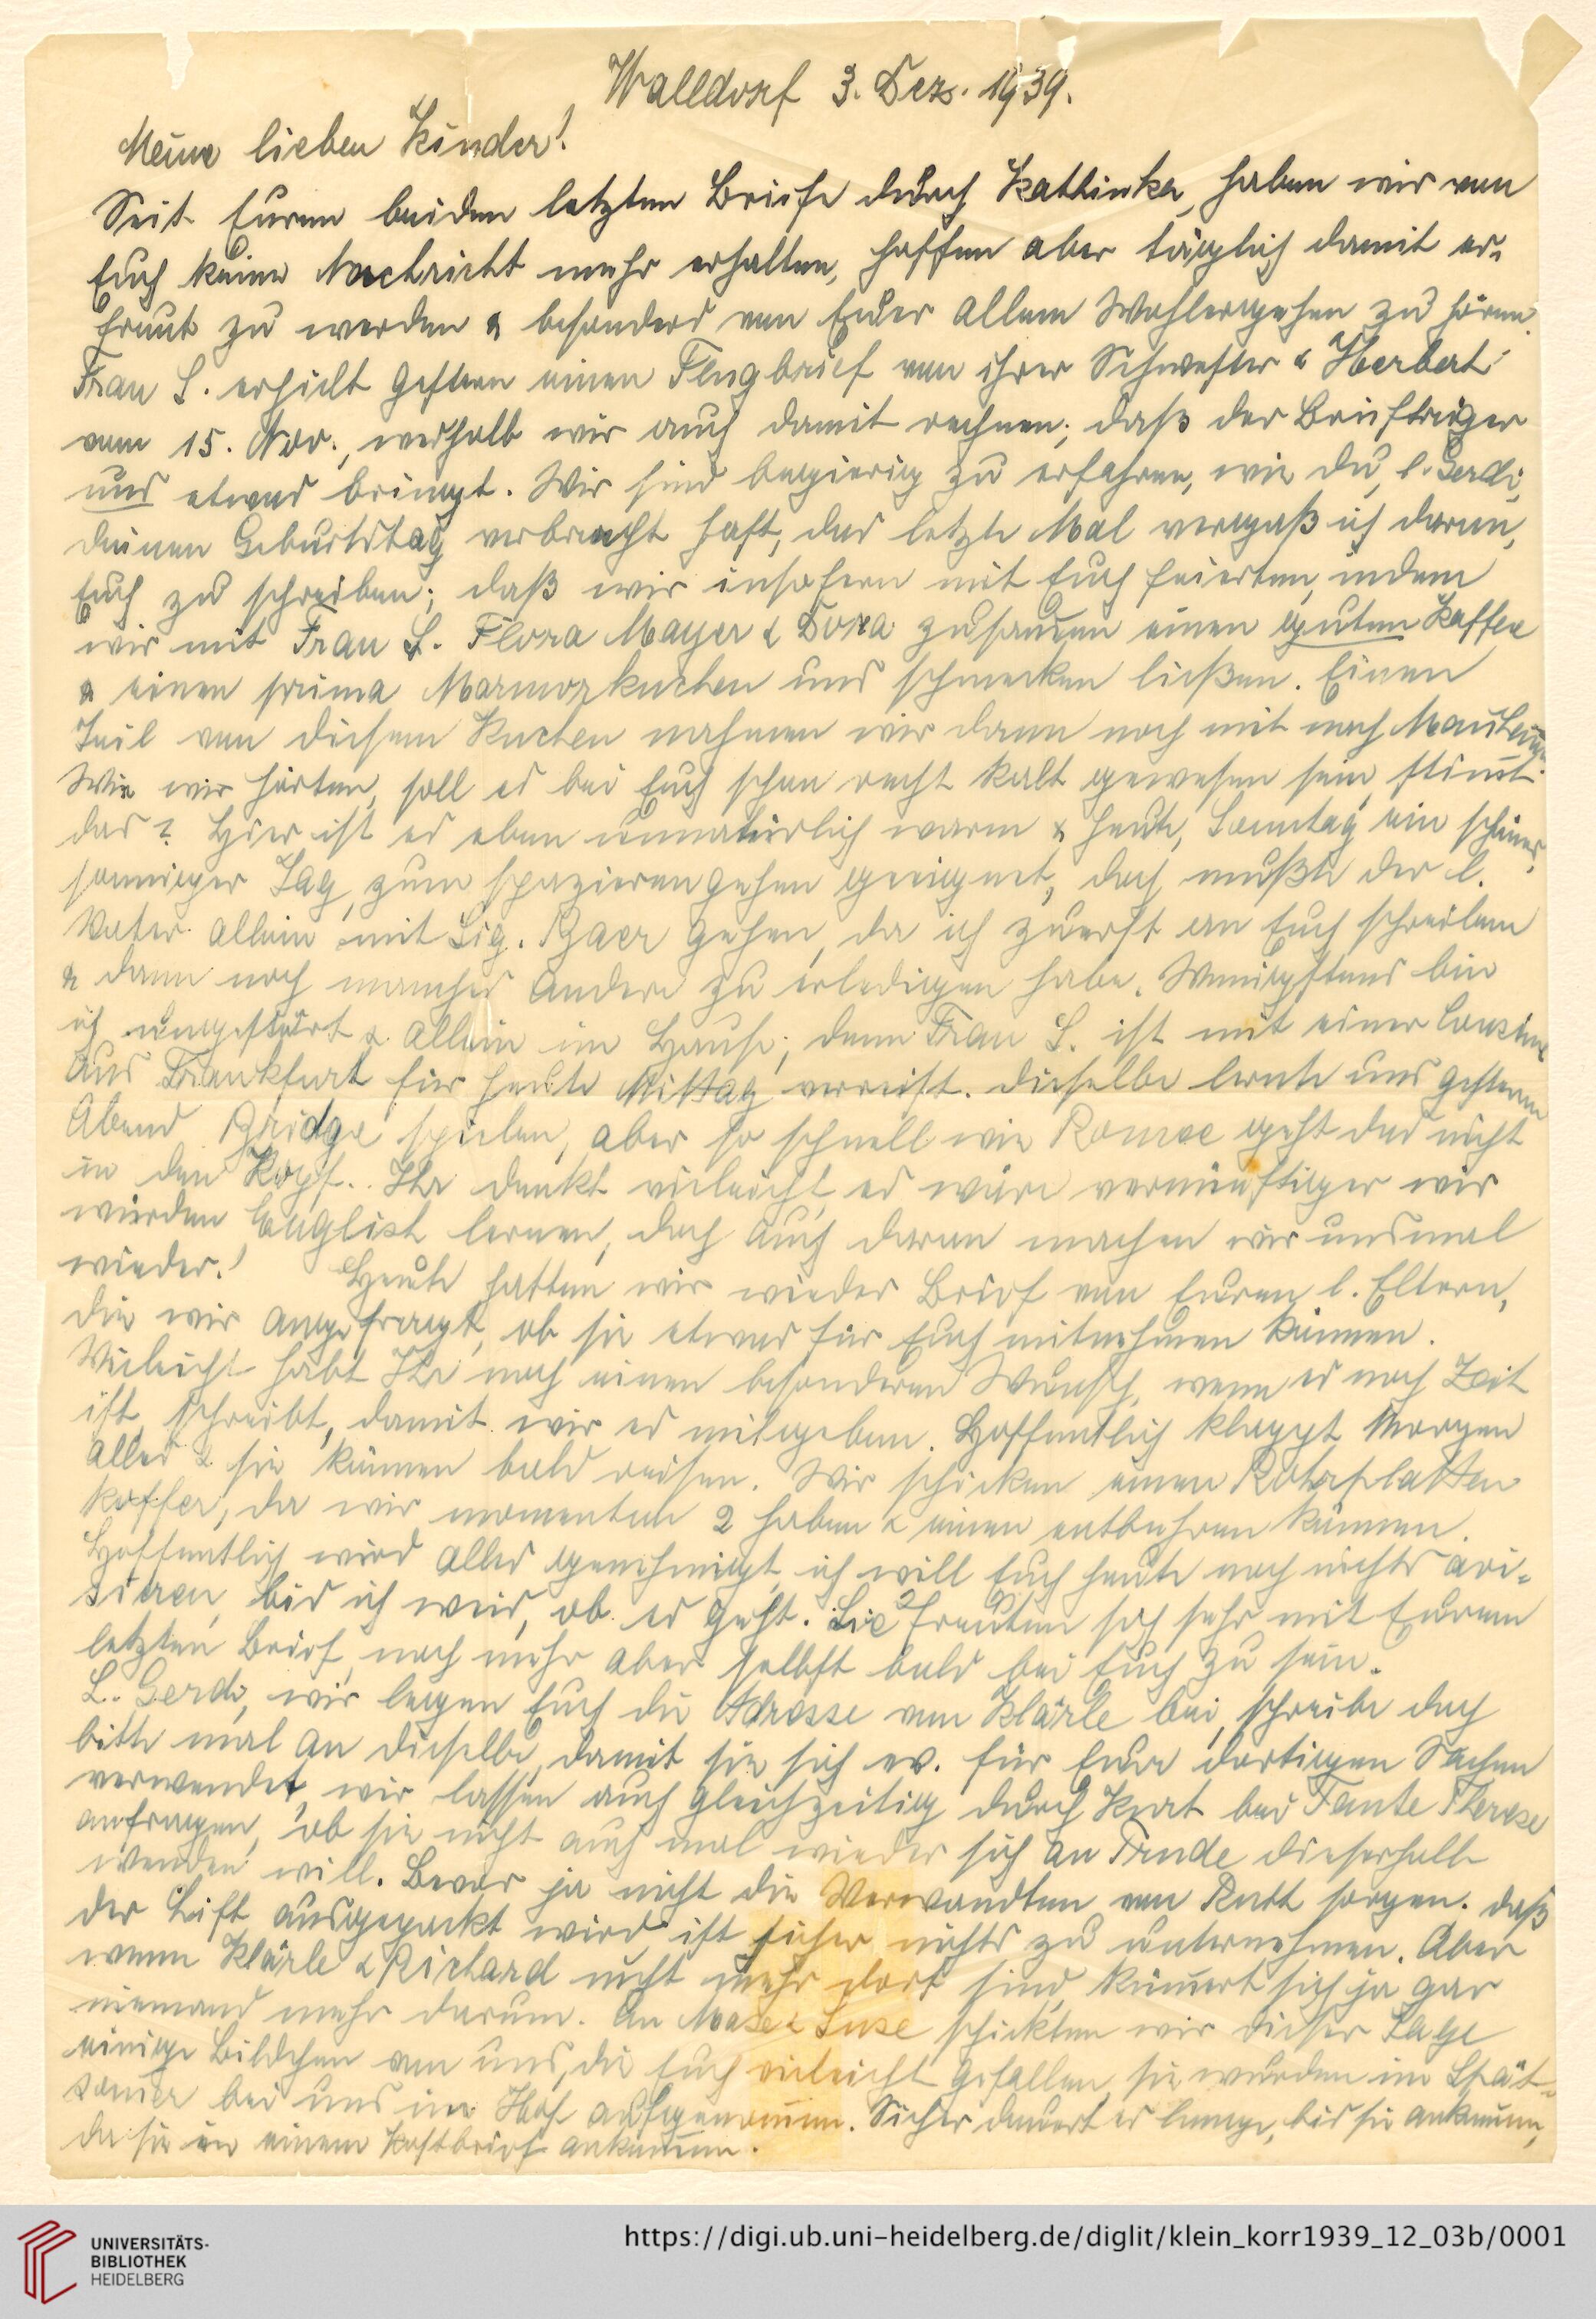 Walldorf 3. Dez. 1939.
Meine lieben Kinder!
Seit Euren beiden letzten Briefe durch Kathinka, haben wir von
Euch keine Nachricht mehr erhalten, hoffen aber täglich damit er-
freut zu werden & besonders von Euer allem Wohlergehen zu hören.
Frau L. erhielt gestern einen Flugbrief von ihrer Schwester & Herbert
vom 15. Nov., weshalb wir auch damit rechnen, daß der Briefträger
uns etwas bringt. Wir sind begierig zu erfahren, wie Du, l. Gerdi,
Deinen Geburtstag verbracht hast, das letzte Mal vergaß ich daran,
Euch zu schreiben; daß wir insofern mit Euch feierten, indem
wir mit Frau L. Flora Mayer & Dora zusammen einen guten Kaffee
& einen prima Marmorkuchen uns schmecken ließen. Einen
Teil von diesem Kuchen nahmen wir dann noch mit nach
Wie wir hörten, soll es bei Euch schon recht kalt gewesen sein, stimt
das? Hier ist es eben unnatürlich warm & heute, Sonntag ein schöner,
sonniger Tag, zum spazierengehen geeignet, doch mußte der l.
Vater allein mit Sig. Baer gehen, da ich zuerst an Euch schreiben
& dann noch manches andere zu erledigen habe. Wenigstens bin
ich ungestört & allein im Hause, denn Frau L. ist mit einer Cousine
aus Frankfurt für heute Mittag verreist. Dieselbe lernte uns gestern
Abend Bridge spielen, aber so schnell wie Romee geht das nicht
in den Kopf. Ihr denkt vieleicht, es wäre vernünftiger wir
würden Englisch lernen, doch auch daran machen wir uns mal
wieder! Heute hatten wir wieder Brief von Euren l. Eltern,
die wir angefragt, ob sie etwas für Euch mitnehmen können.
Vieleicht habt Ihr noch einen besonderen Wunsch, wenn es noch Zeit
ist, schreibt, damit wir es mitgeben. Hoffentlich klappt Morgen
alles & sie können bald reisen. Wir schicken einen Rohrplatten
koffer, da wir momentan 2 haben & einen entbehren können.
Hoffentlich wird alles genehmigt, ich will Euch heute noch nichts avi-
sieren, bis ich weis, ob es geht. Sie freuten sich sehr mit Eurem
letzten Brief, noch mehr aber selbst bald bei Euch zu sein.
L. Gerdi, wir legen Euch die Adresse von Klärle bei, schreibe doch
bitte mal an dieselbe, damit sie sich ev. für Eure dortigen Sachen
verwendet, wir lassen auch gleichzeitig durch Kurt bei Tante Therese
anfragen, ob sie nicht auch mal wieder sich an Trude dieserhalb
wenden will. Bevor ja nicht die Verwandten von Ruth sorgen, daß
der Lift ausgepackt wird, ist sicher nichts zu unternehmen. Aber
wenn Klärle & Richard nicht mehr dort sind, kümert sich ja gar
niemand mehr darum. An & Suse schickten wir dieser Tage
einige Bildchen von uns, die Euch vieleicht gefallen, sie wurden im Spät-
somer bei uns im Hof aufgenomen. Sicher dauert es lange, bis sie ankomen,
da sie in einem Postbrief ankomen.
UNIVERSITÄTS-
BIBLIOTHEK
HEIDELBERG
https://digi.ub.uni-heidelberg.de/diglit/klein_korr1939_12_03b/0001